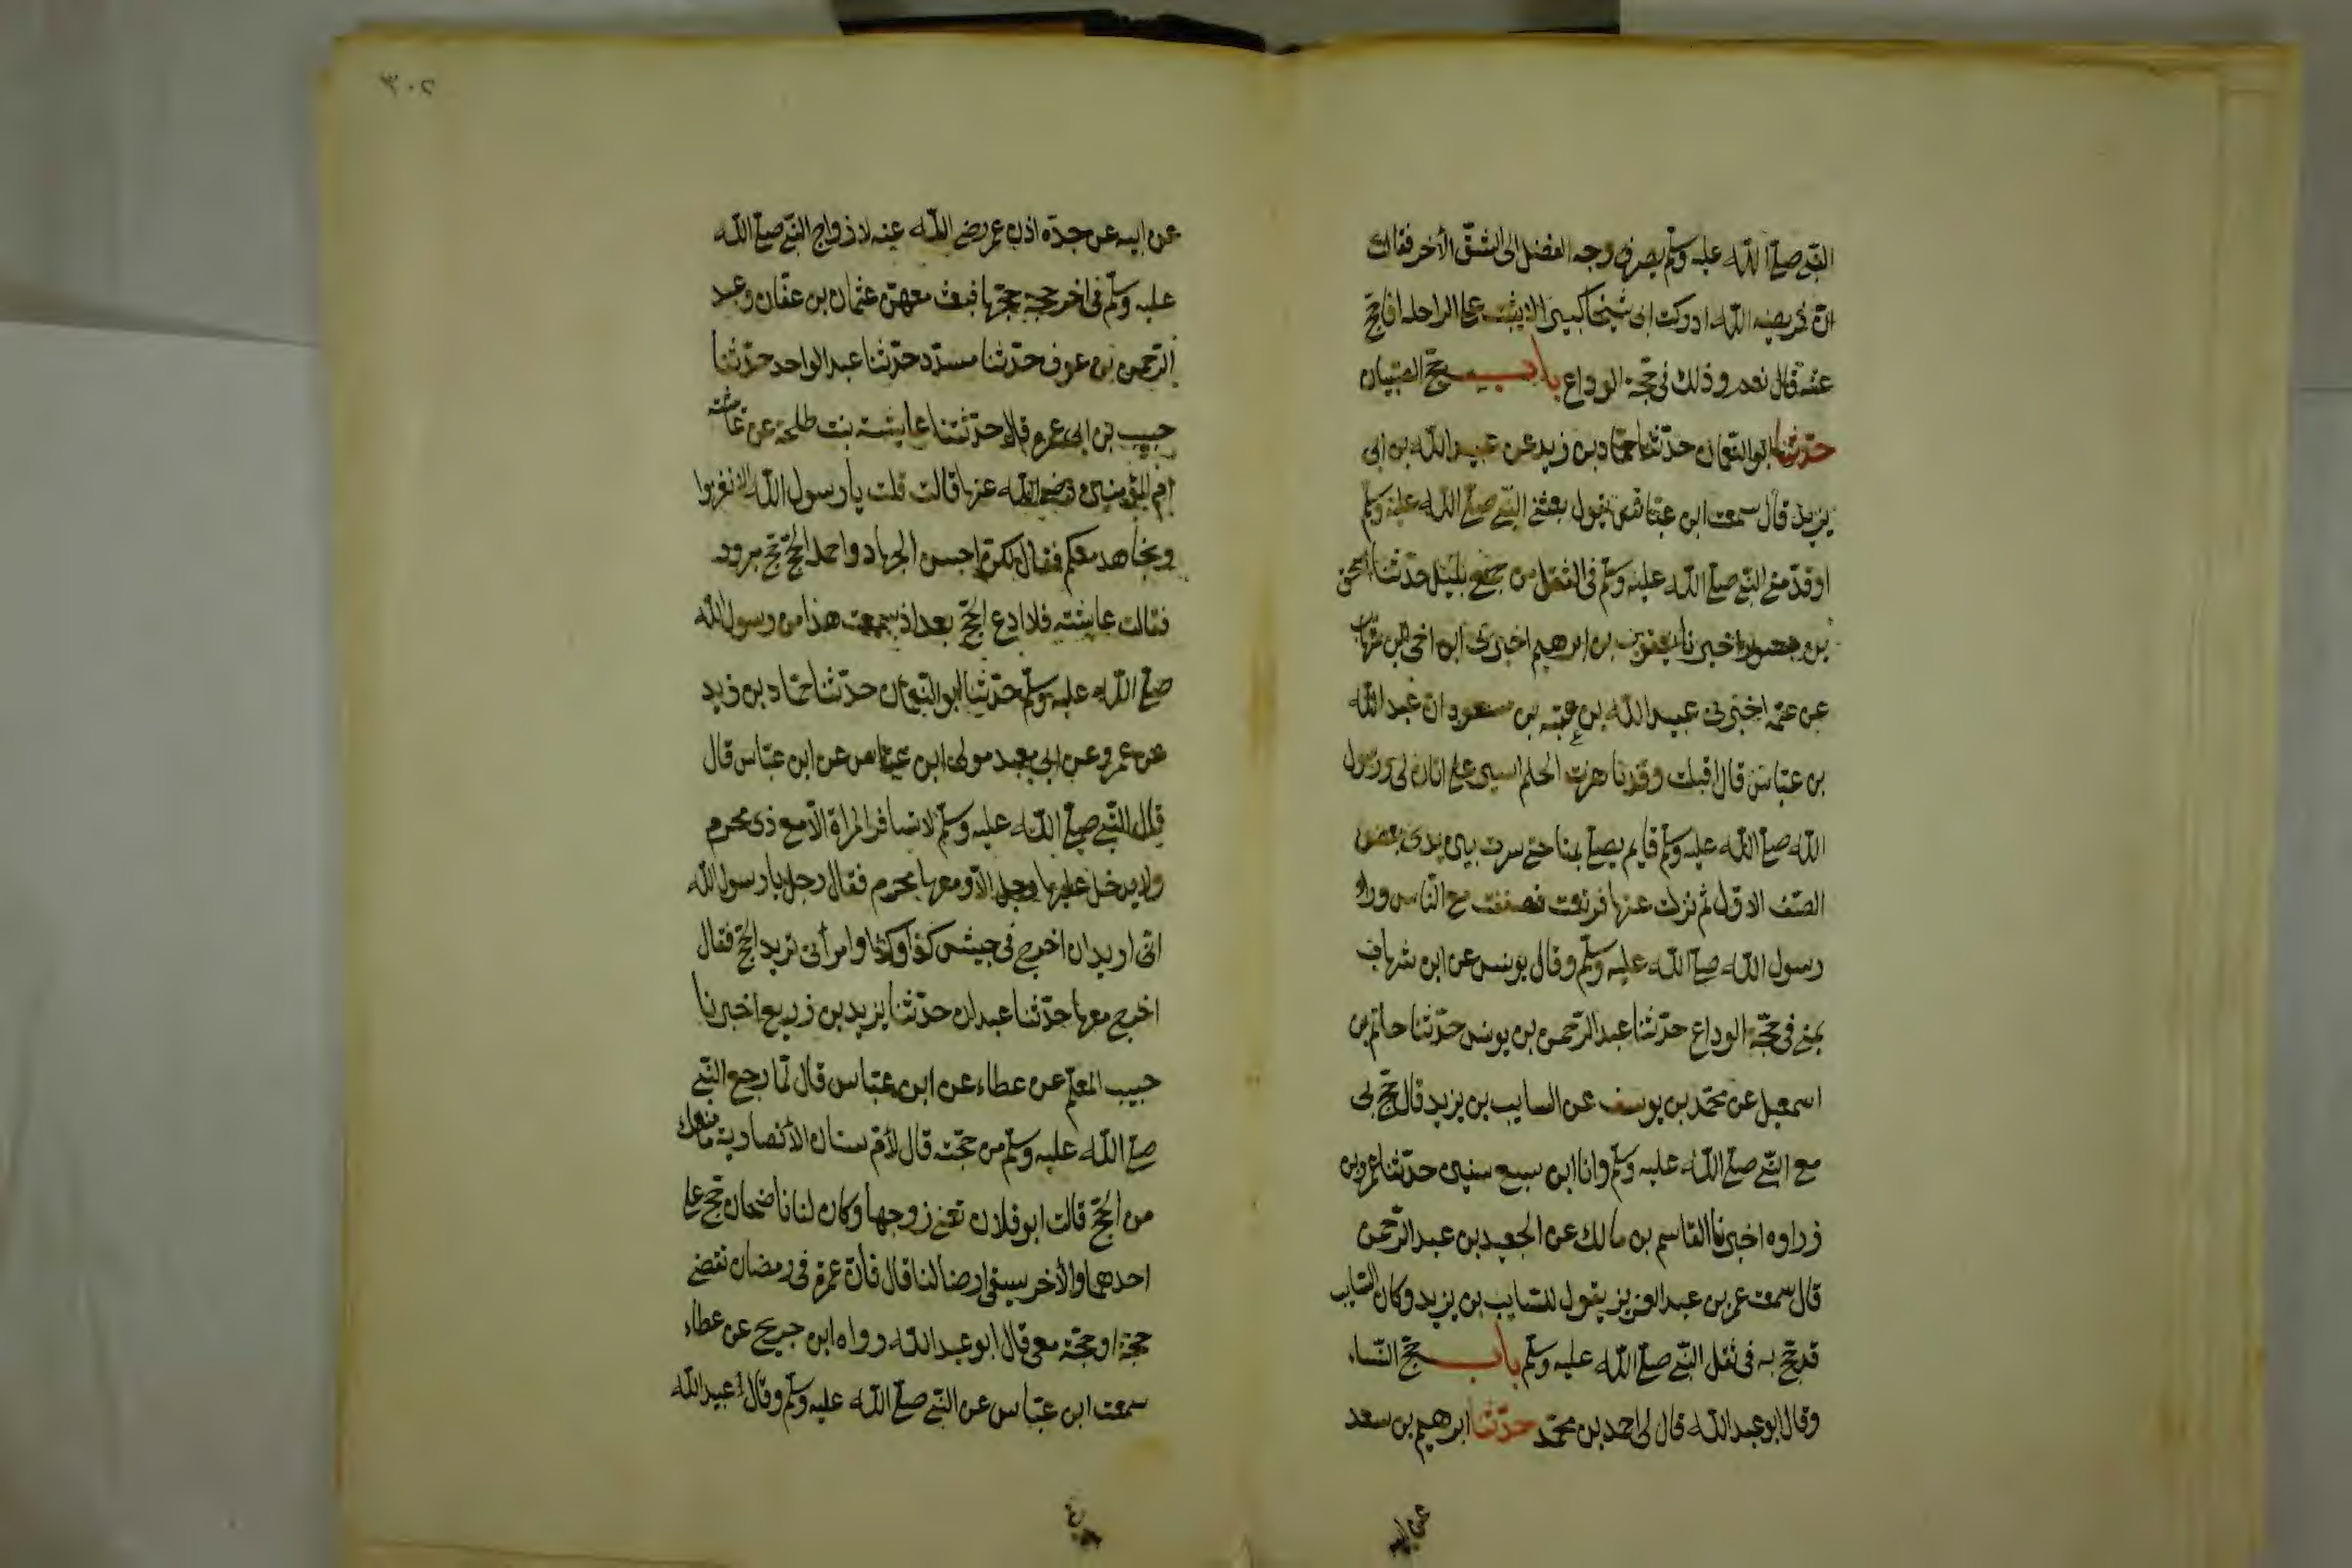 النبي صلى الله عليه وسلم يصرف وجه الفضل الى الشق الآخر فقالت
ان فريضة الله ادركت ابى شيخا كبيرا لا يثبت على الراحلة افاحج
عنه قال نعم وذلك فى حجة الوداع باب حج الصبيان
حدثنا ابو النعمان حدثنا حماد بن زيد عن عبيد الله بن ابى
يزيد قال سمعت ابن عباس يقول بعثنى النبي صلى الله عليه وسلم
او قدمنى النبي صلى الله عليه وسلم فى الثقل من جمع بليل حدثنا اسحق
بن منصور اخبرنا يعقوب بن ابرهيم اخبرنى ابن اخى ابن شهاب
عن عمه اخبرنى عبيد الله بن عتبة بن مسعود ان عبد الله
بن عباس قال اقبلت وقد ناهزت الحلم اسير على اتان لى ورسول
الله صلى الله عليه وسلم قايم يصلى بمنا حتى سرت بين يدى بعض
الصف الاول ثم نزلت عنها فرتعت فصففت مع الناس وراء
رسول الله صلى الله عليه وسلم وقال يونس عن ابن شهاب
بمنى فى حجة الوداع حدثنا عبد الرحمن بن يونس حدثنا حاتم بن
اسمعيل عن محمد بن يوسف عن السايب بن يزيد قال حج بى
مع النبي صلى الله عليه وسلم وانا ابن سبع سنين حدثنا عمرو بن
زراره اخبرنا القاسم بن مالك عن الجعيد بن عبد الرحمن
قال سمعت عمر بن عبد العزيز يقول للسايب بن يزيد وكان السايب
قد حج به فى ثقل النبي صلى الله عليه وسلم باب حج النساء
وقال ابو عبد الله قال لى احمد بن محمد حدثنا ابرهيم بن سعد
عن ابيه
٣٠٢
عن ابيه عن جده اذن عمر رضى الله عنه لازواج النبي صلى الله
عليه وسلم فى اخر حجة حجها فبعث معهن عثمان بن عفان وعبد
الرحمن بن عوف حدثنا مسدد حدثنا عبد الواحد حدثنا
حبيب بن ابى عمرة قال حدثتنا عايشة بنت طلحة عن عائشة
ام المؤمنين رضى الله عنها قالت قلت يا رسول الله الا نغزوا
ونجاهد معكم فقال لكن احسن الجهاد واجمله الحج حج مبرور
فقالت عائشة فلا ادع الحج بعد اذ سمعت هذا من رسول الله
صلى الله عليه وسلم حدثنا ابو النعمان حدثنا حماد بن زيد
عن عمرو عن ابى معبد مولى ابن عباس عن ابن عباس قال
قال النبي صلى الله عليه وسلم لا تسافر المراة الا مع ذى محرم
ولا يدخل عليها رجل الا ومعها محرم فقال رجل يا رسول الله
انى اريد ان اخرج فى جيش كذا وكذا وامرأتى تريد الحج فقال
اخرج معها حدثنا عبدان حدثنا يزيد بن زريع اخبرنا
حبيب المعلم عن عطاء عن ابن عباس قال لما رجع النبي
صلى الله عليه وسلم من حجته قال لأم سنان الأنصارية ما منعك
من الحج قالت ابو فلان تعنى زوجها وكان لنا ناضحان حج على
احدهما والأخر يسقى ارضا لنا قال فان عمرة فى رمضان تقضى
حجة او حجة معى قال ابو عبد الله رواه ابن جريج عن عطاء
سمعت ابن عباس عن النبي صلى الله عليه وسلم وقال عبيد الله